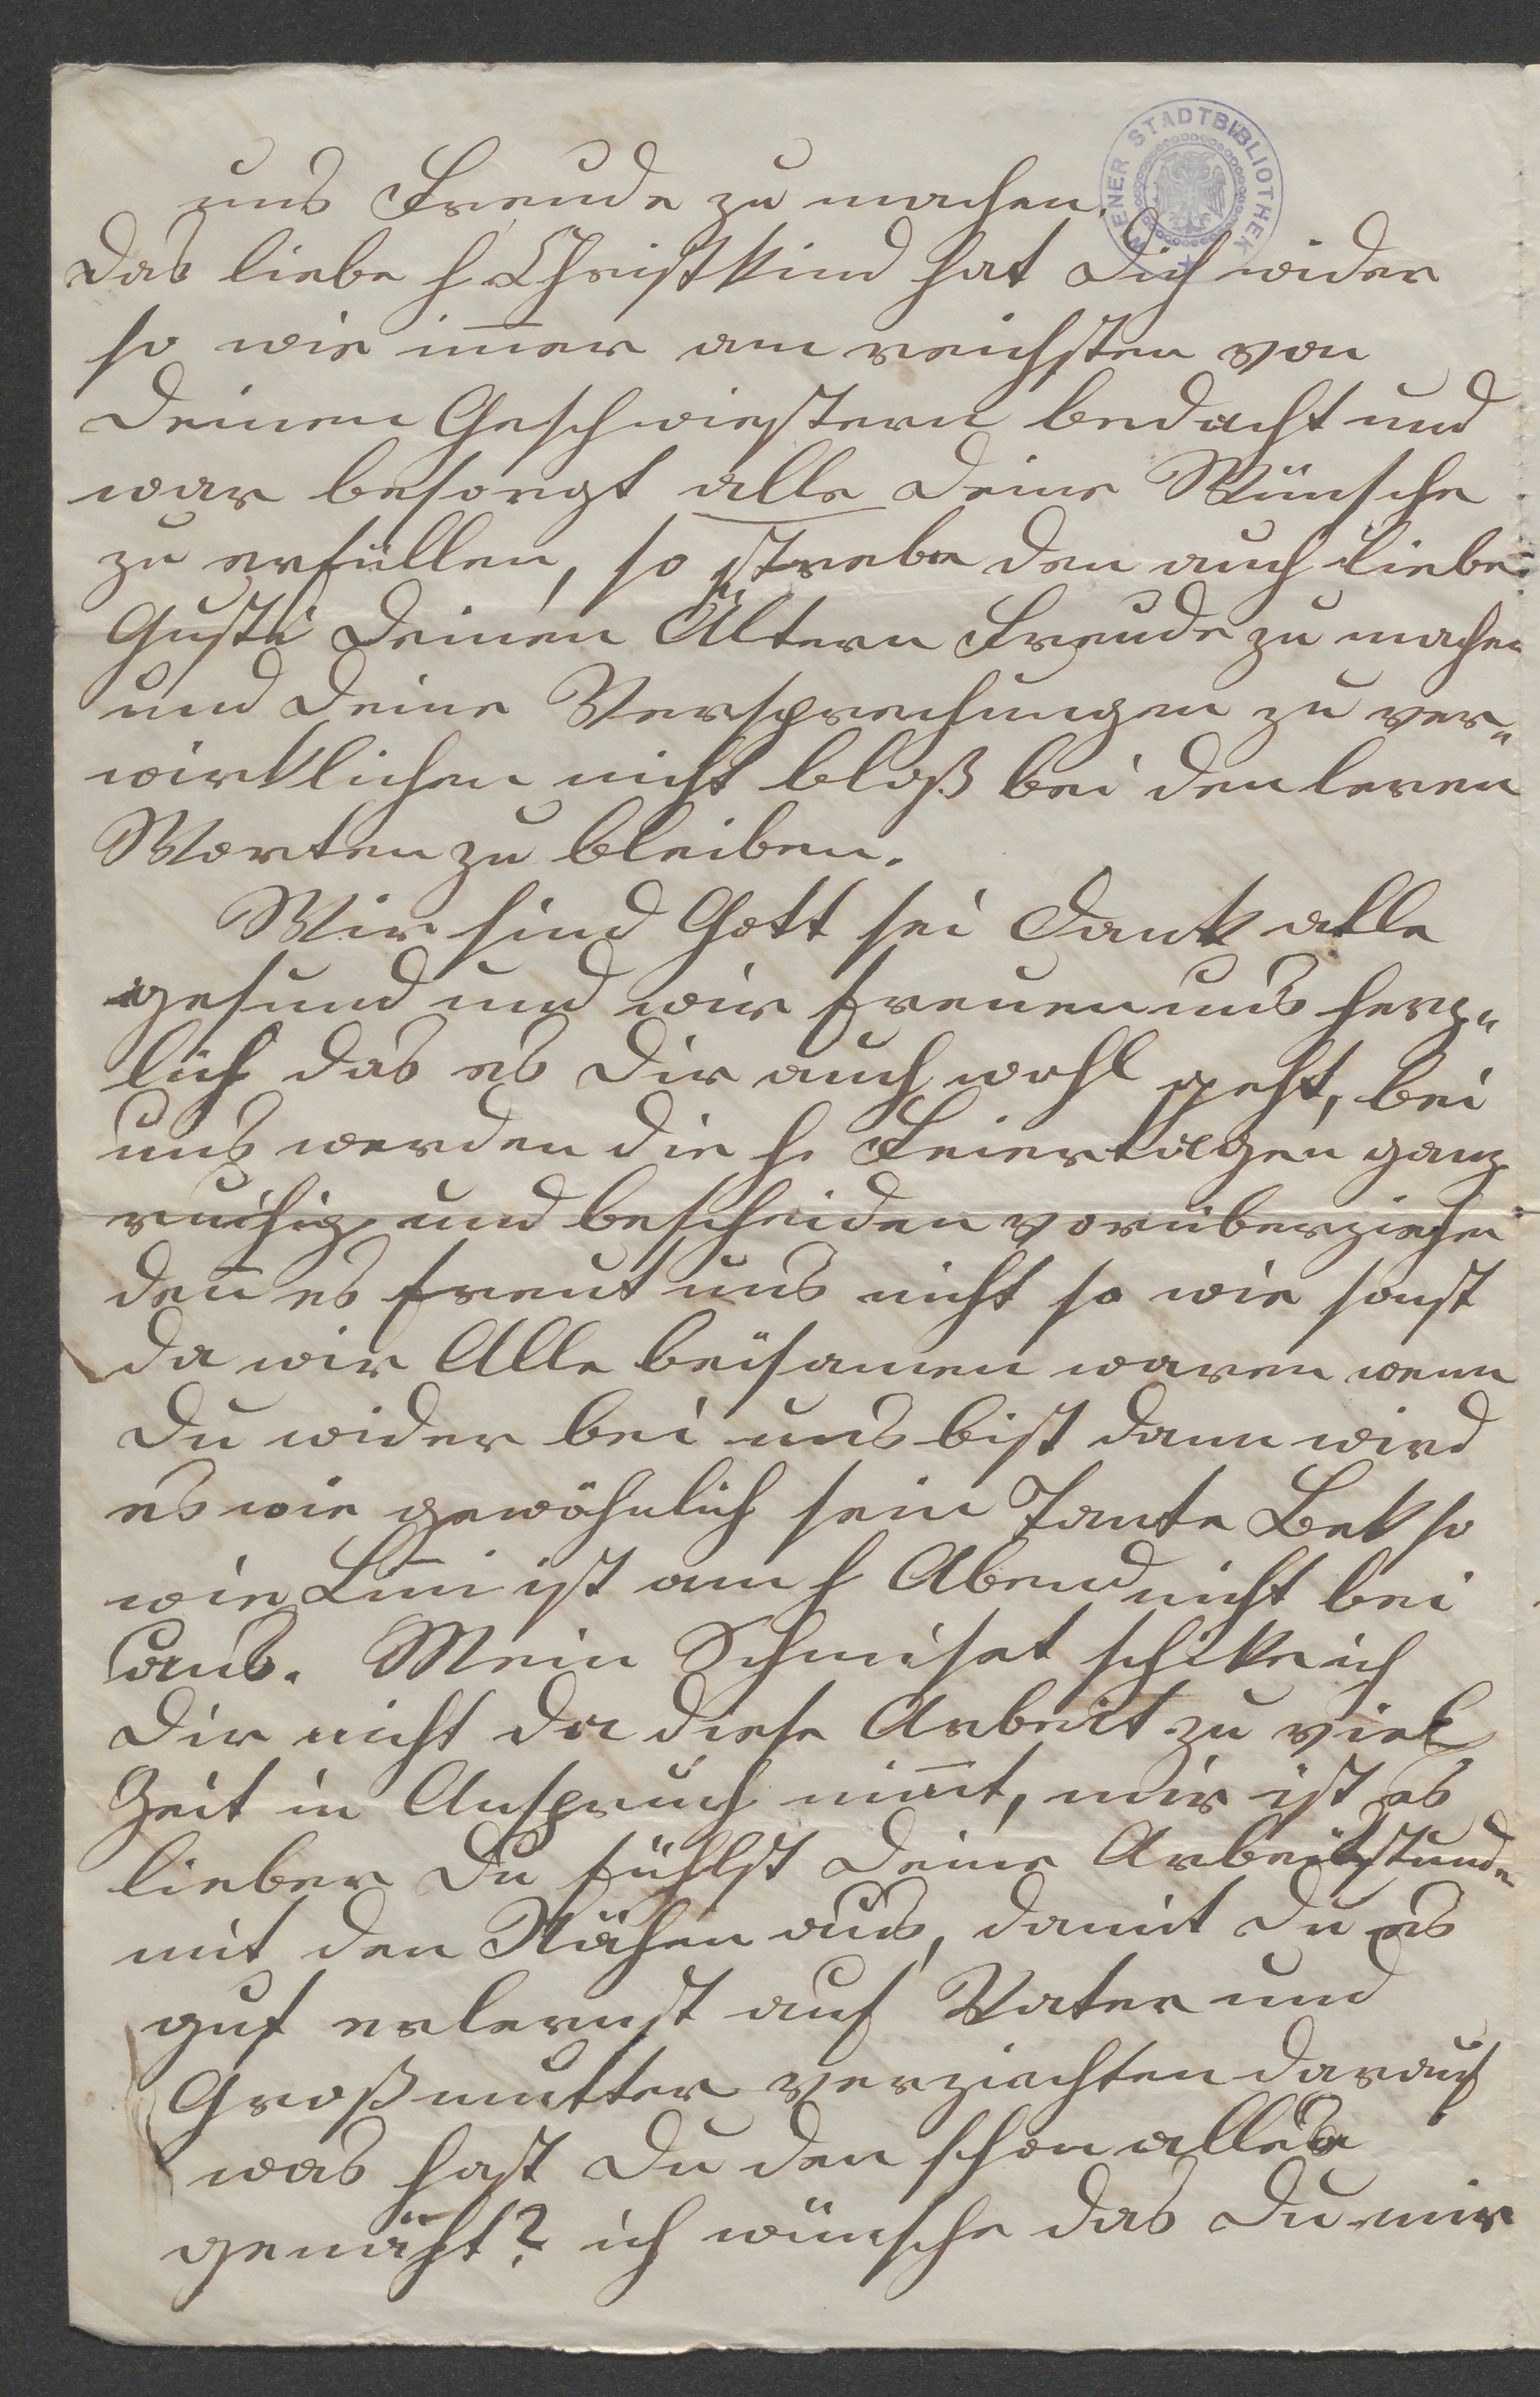 WIENER STADTBIBLIOTHEK
uns Freude zu machen.
Das liebe h Christkind hat Dich wider
so wie im̅er am reichsten von
Deinen Geschwiestern bedacht und
war besorgt alle Deine Wünsche
zu erfüllen, so strebe den auch liebe
Gusti Deinen Ältern Freude zu machen
und Deine Versprechungen zu ver„
wirklichen nicht bloß bei den leren
Worten zu bleiben.
Wir sind Gott sei Dank alle
gesund und wir freuen uns herz„
lich das es Dir auch wohl geht, bei
uns werden die h. Feiertagen ganz
ruhig und bescheiden vorüberziehen
den̅ es freut uns nicht so wie sonst
da wir Alle beisamen waren wenn
Du wider bei uns bist dann wird
es wie gewöhnlich sein Tante Bek so
wie Lini ist am h Abend nicht bei
uns. Mein Schmiset schike ich
Dir nicht da diese Arbeit zu viel
Zeit in Anspruch nim̅t, mir ist es
lieber Du fühlst Deine Arbeitstunde
mit den Nähen aus, damit Du es
gut erlernst auch Vater und
Großmutter verzichten darauf
was hast Du den schon alles
genäht? ich wünsche das Du mir